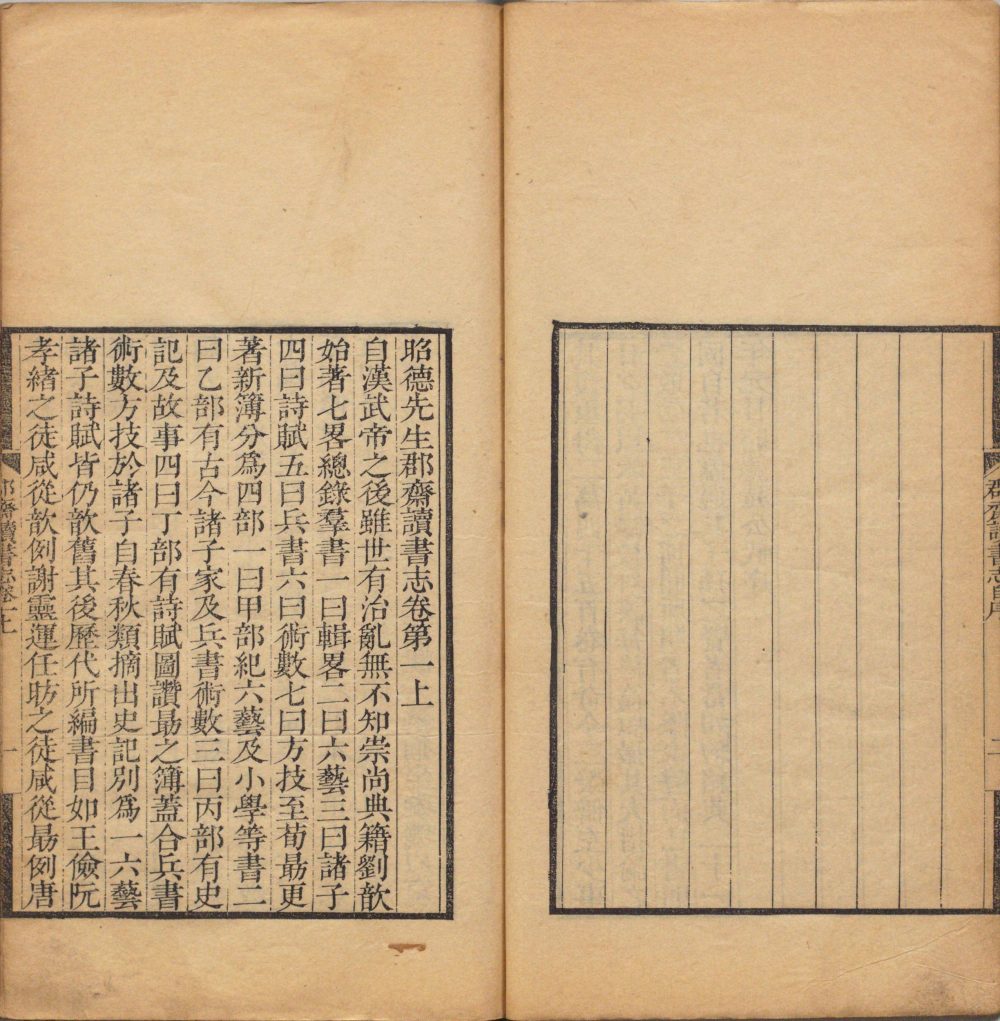 郡齋讀書志自序
二
昭德先生郡齋讀書志卷第一上
自漢武帝之後雖世有治亂無不知崇尚典籍劉歆
始著七畧總錄羣書一曰輯畧二曰六藝三曰諸子
四曰詩賦五曰兵書六曰術數七曰方技至荀朂更
著新簿分爲四部一曰甲部紀六藝及小學等書二
曰乙部有古今諸子家及兵書術數三曰丙部有史
記及故事四曰丁部有詩賦圖讚朂之簿蓋合兵書
術數方技於諸子自春秋類摘出史記別爲一六藝
諸子詩賦皆仍歆舊其後歷代所編書目如王儉阮
孝緒之徒咸從歆例謝靈運任昉之徒咸從朂例唐
郡齋讀書志卷一上
一